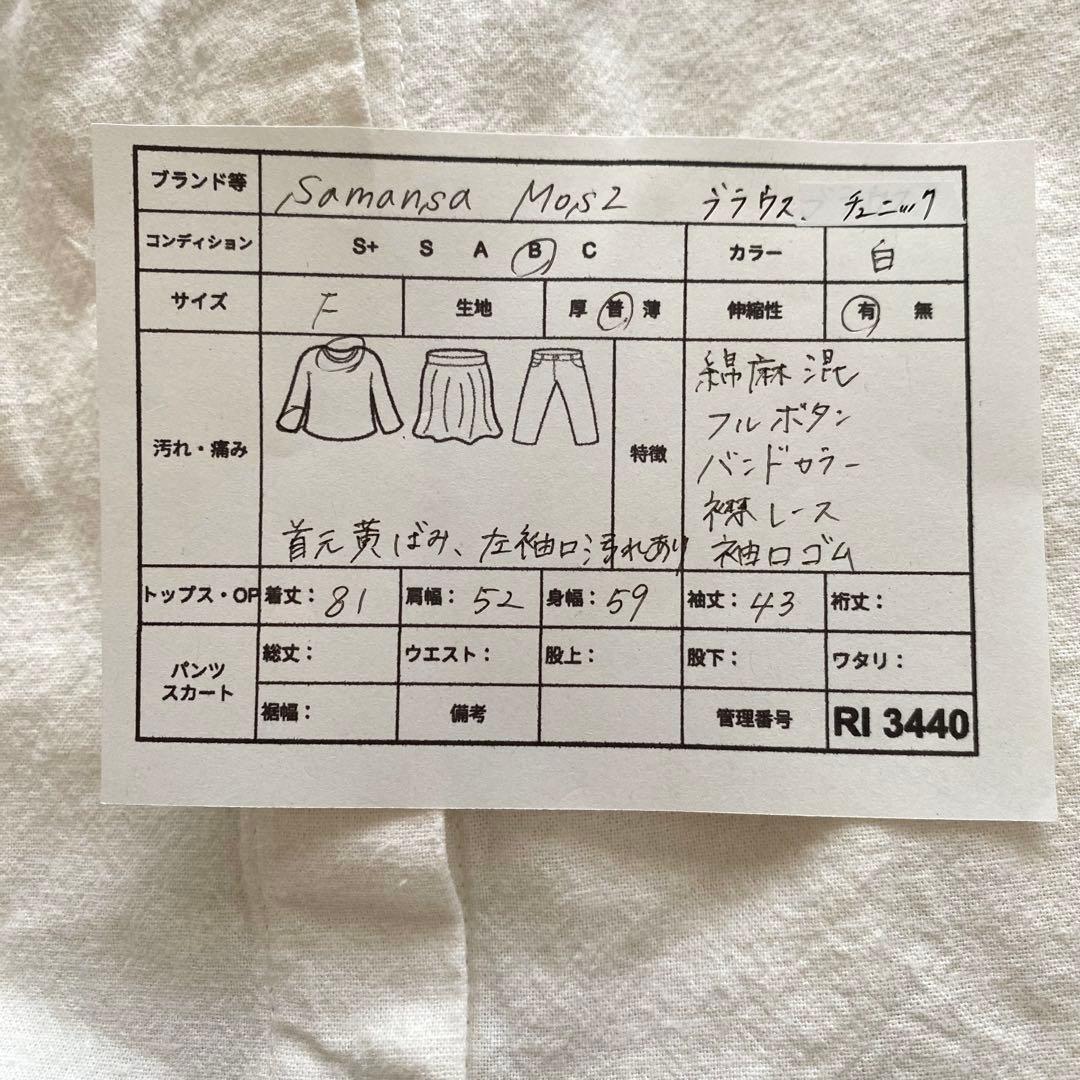 ブランド等 Samansa Mos2 ブラウス、チュニック
コンディション S+ S A B C カラー 白
サイズ F 生地 厚 普 薄 伸縮性 有 無
汚れ・痛み 首元黄ばみ、左袖口汚れあり
特徴 綿麻混
フルボタン
バンドカラー
襟レース
袖口ゴム
トップス・OP 着丈：81 肩幅：52 身幅：59 袖丈：43 裄丈：
パンツ
スカート
総丈： ウエスト： 股上： 股下： ワタリ：
裾幅： 備考 管理番号 RI 3440